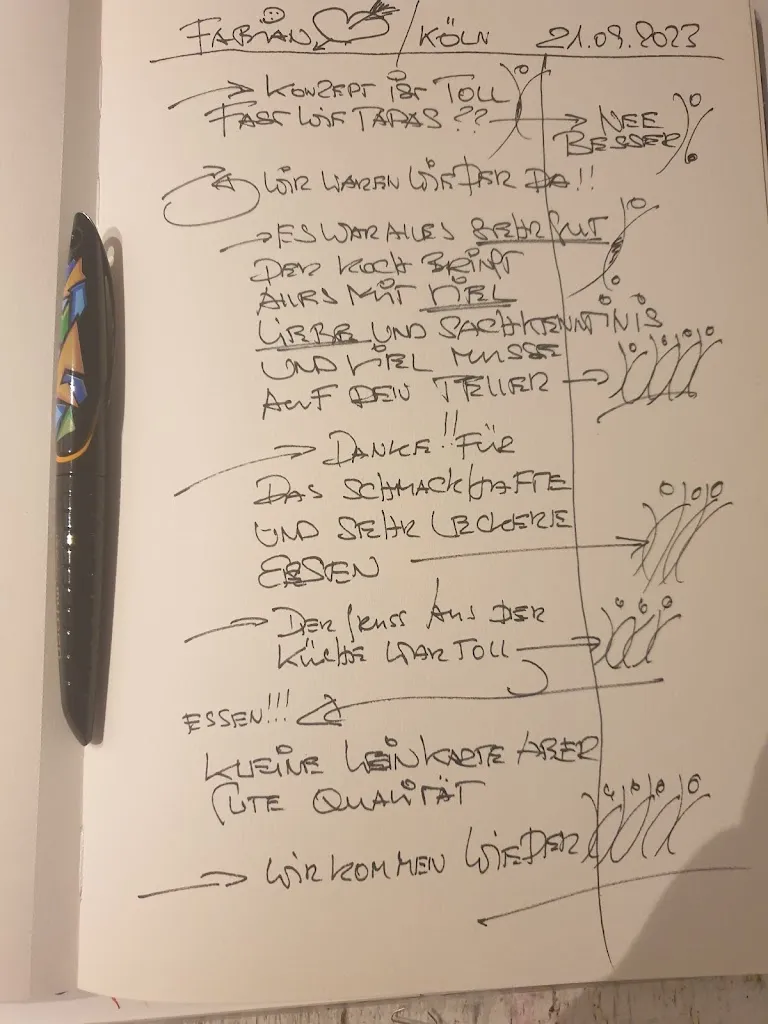 FABIAN / KÖLN 21.09.2023
→ KONZEPT IST TOLL
FAST WIE TAPAS ?? → NEE
BESSER
WIR WAREN WIEDER DA!!
→ ES WAR ALLES SEHR GUT
DER KOCH BRINGT
ALLES MIT VIEL
LIEBE UND SACHKENNTNIS
UND VIEL MUSSE
AUF DEN TELLER →
→ DANKE!! FÜR
DAS SCHMACKHAFTE
UND SEHR LECKERE
ESSEN →
→ DER GRUSS AUS DER
KÜCHE WAR TOLL →
ESSEN!!! ←
KLEINE WEINKARTE ABER
GUTE QUALITÄT
→ WIR KOMMEN WIEDER